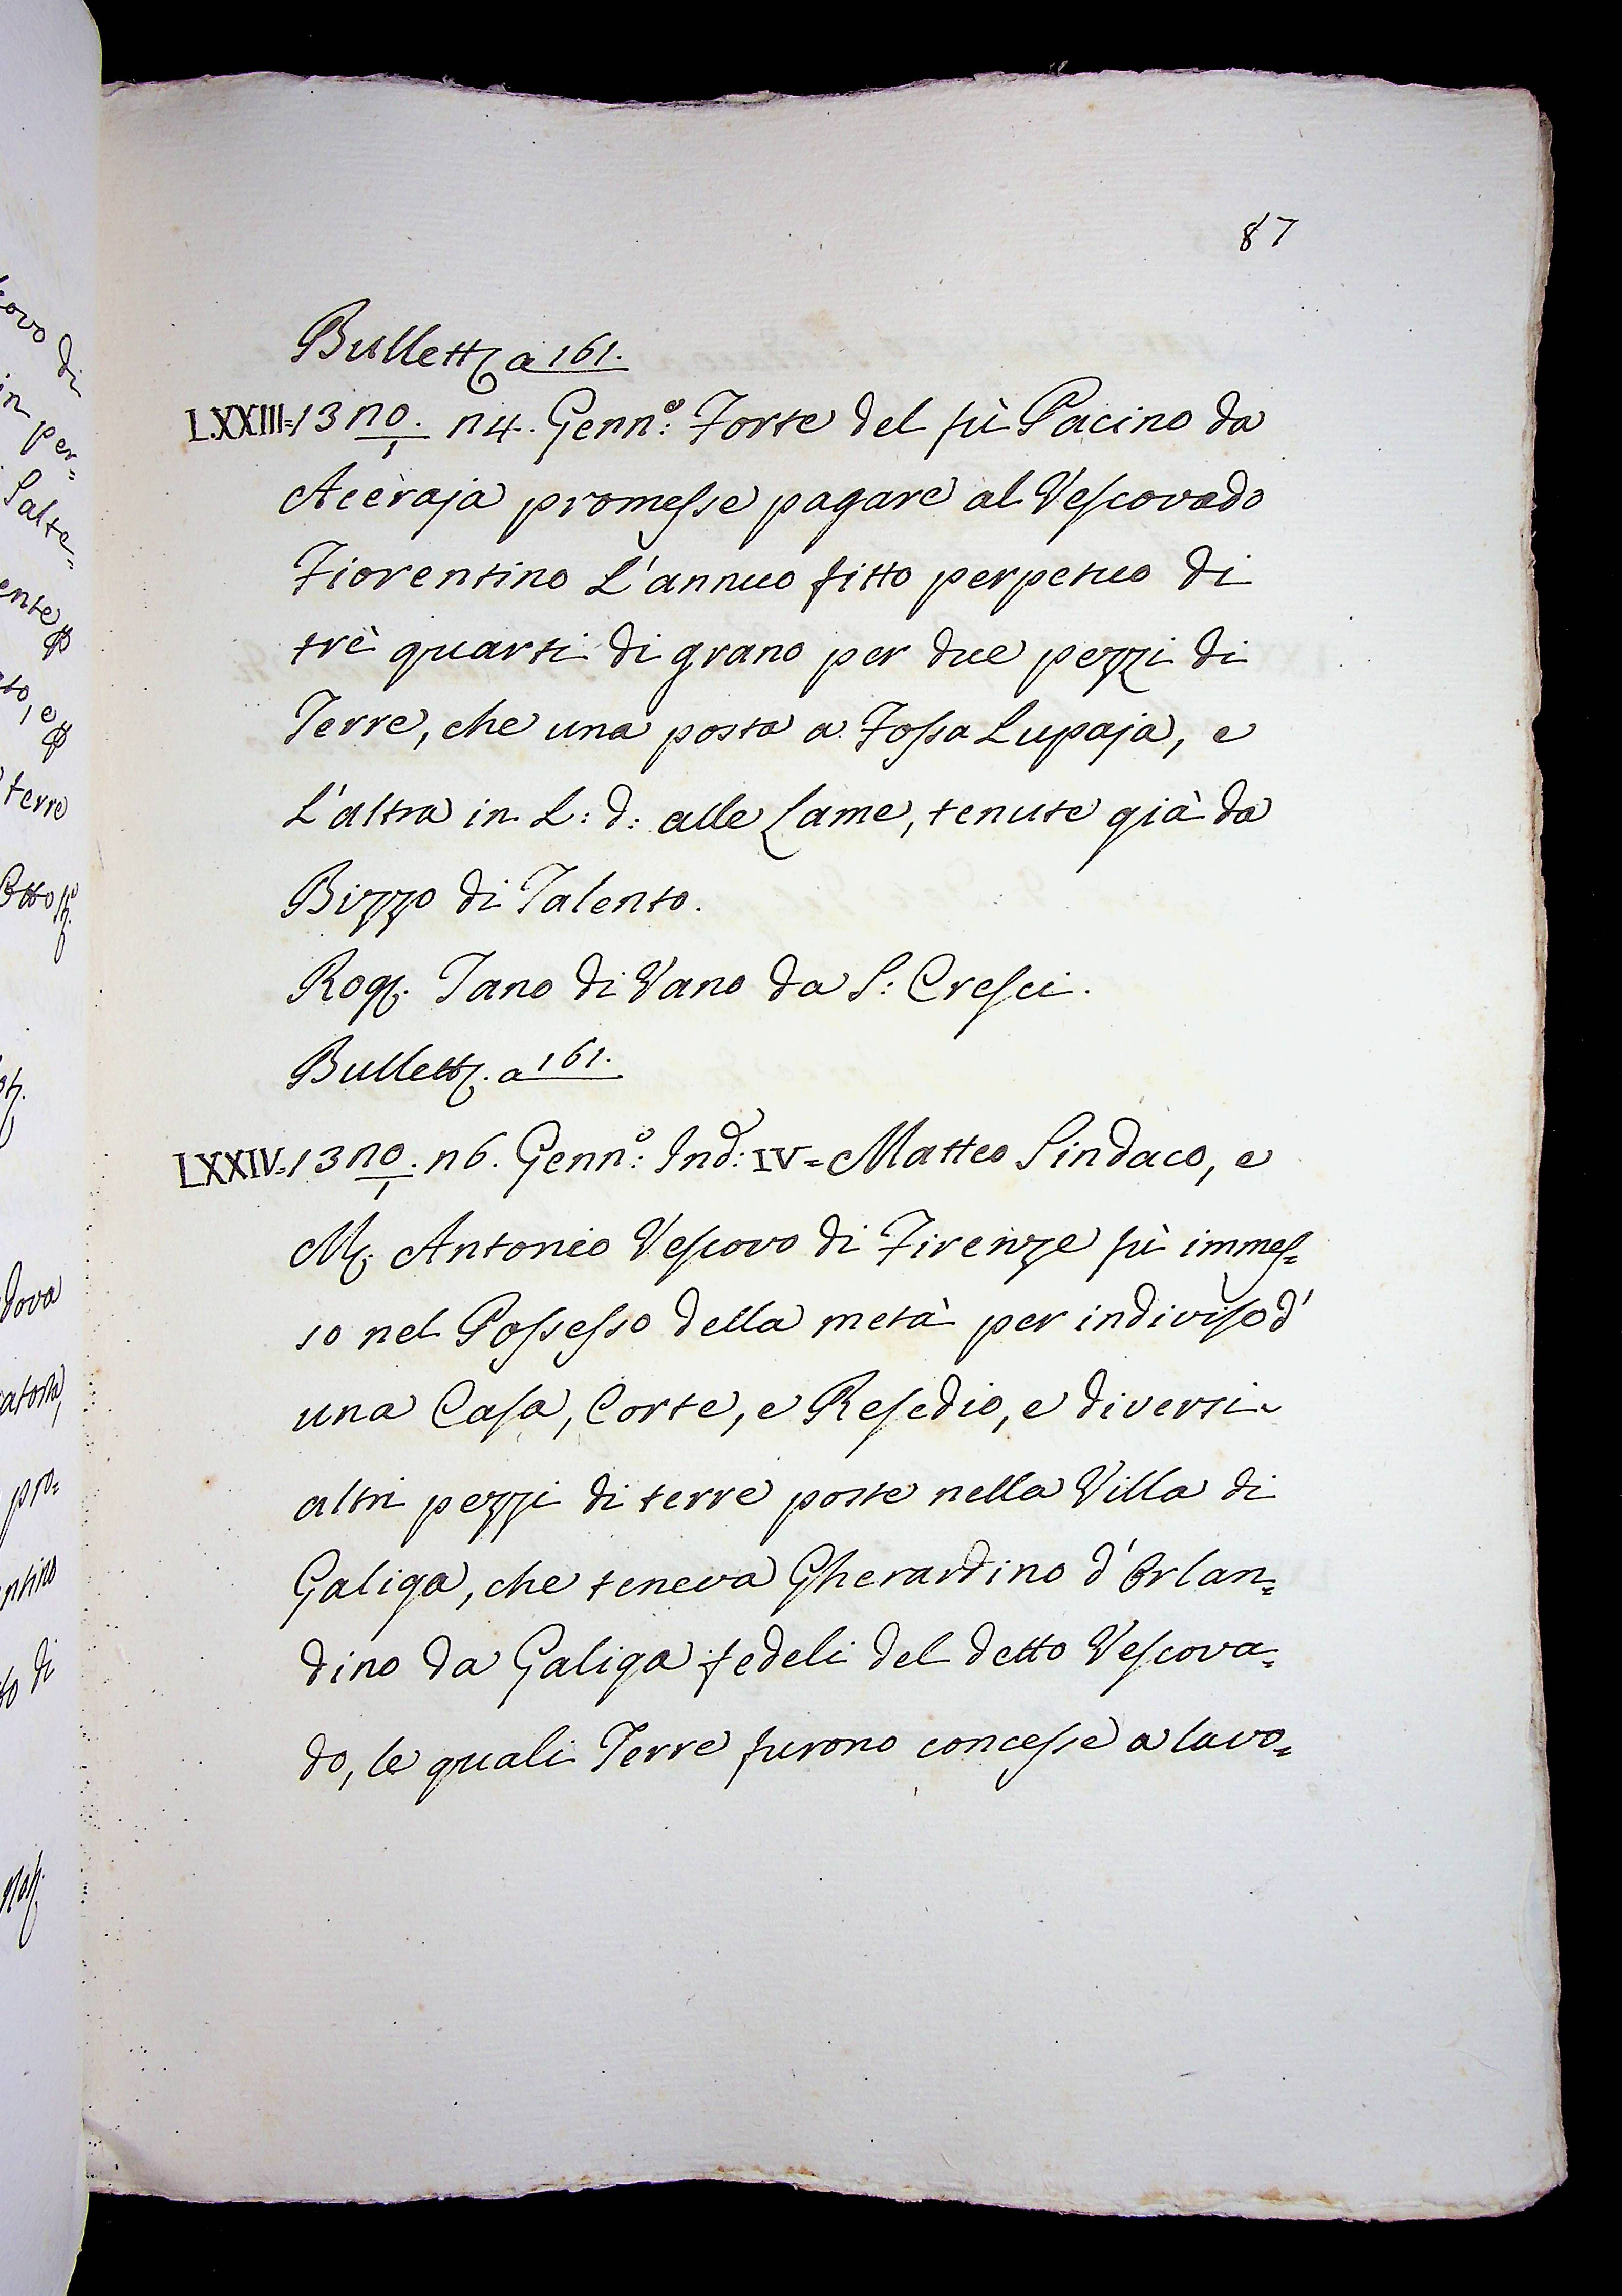 87
Bullett. a 161.
LXXIII = 1320/1. 24. Genn.o: Forte del fù Pacino da
Aceraja promesse pagare al Vescovado
Fiorentino L'annuo fitto perpetuo di
trè quarti di grano per due pezzi di
Terre, che una posta a Fossa Lupaja, e
L'altra in L: d: alle Lame, tenute già da
Bizzo di Talento.
Rog. Tano di Vano da S: Cresci.
Bullett. a 161.
LXXIV = 1320/1. 26. Genn.o: Ind: IV = Matteo Sindaco, e
M. Antonio Vescovo di Firenze fù immes=
so nel Possesso della metà per indiviso d'
una Casa, Corte, e Resedio, e diversi
altri pezzi di terre poste nella Villa di
Galiga, che teneva Gherardino d'Orlan=
dino da Galiga fedeli del detto Vescova=
do, le quali Terre furono concesse a lavo=